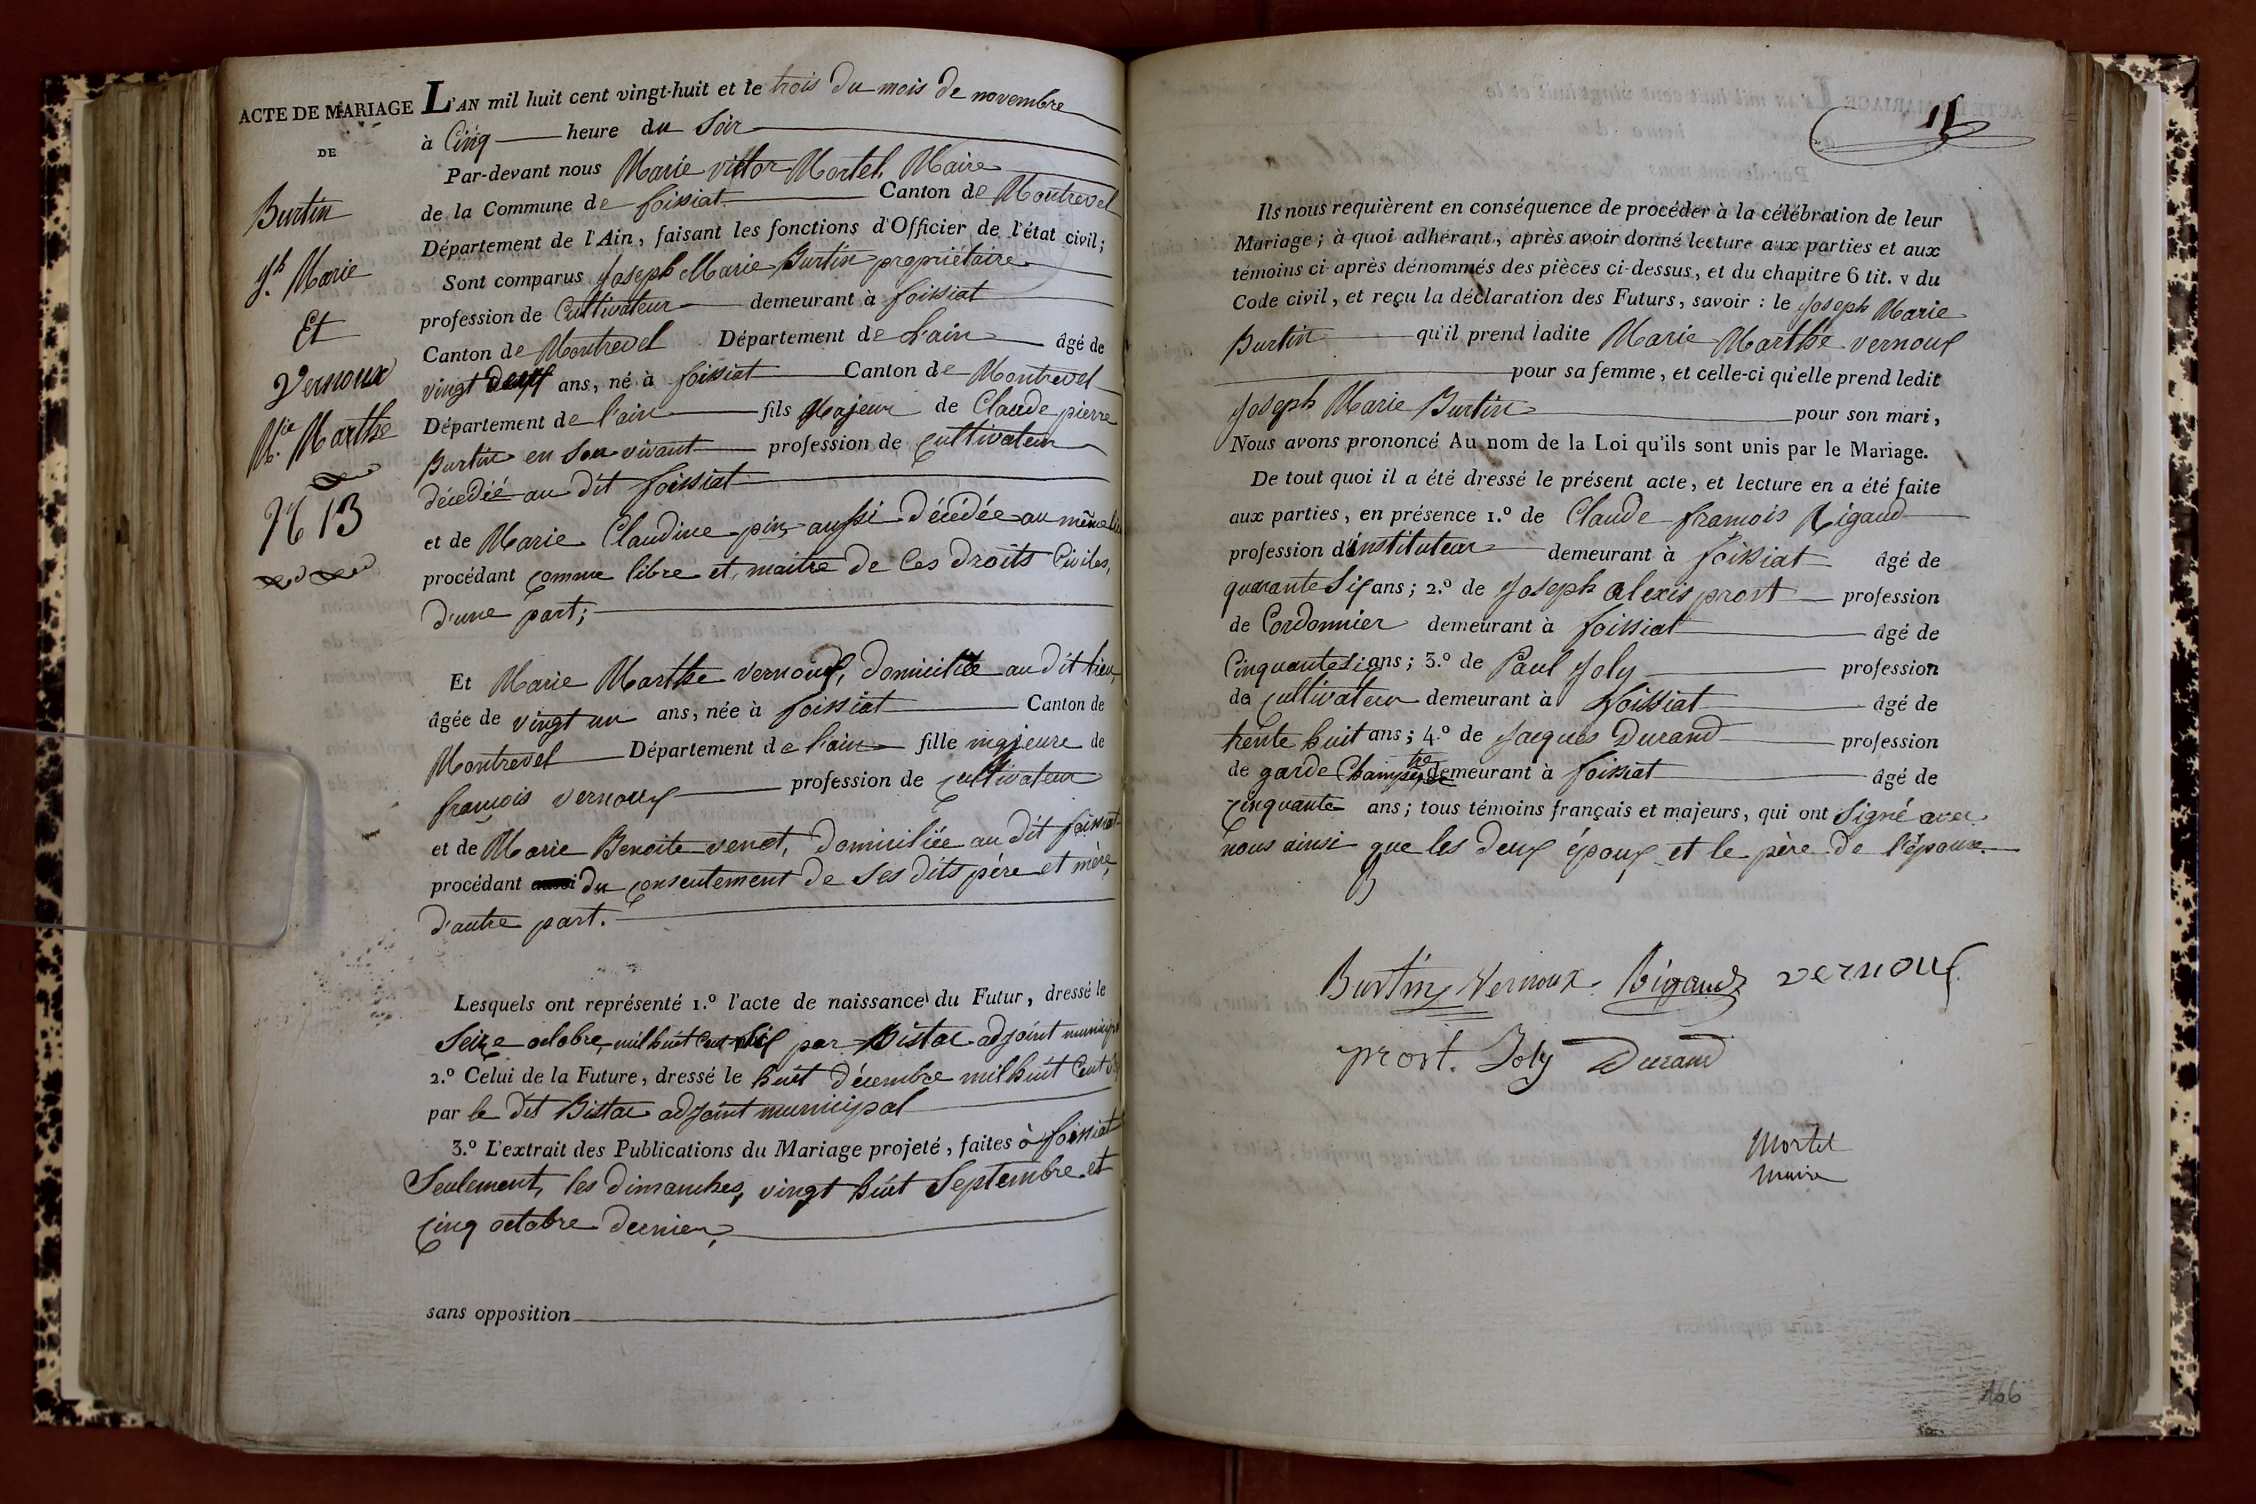 ACTE DE MARIAGE
DE
Burtin
Jh. Marie
Et
Vernoux
Mie. Marthe
N 13
L'AN mil huit cent vingt-huit et le trois du mois de novembre
à Cinq heure du Soir
Par-devant nous Marie victor Mortel, Maire
de la Commune de foissiat Canton de Montrevel
Département de l'Ain, faisant les fonctions d'Officier de l'état civil;
Sont comparus Joseph Marie Burtin propriétaire
profession de Cultivateur demeurant à foissiat
Canton de Montrevel Département de L'ain âgé de
vingt deux ans, né à foissiat Canton de Montrevel
Département de l'ain fils Majeur de Claude pierre
Burtin en Son vivant profession de cultivateur
décédié au dit foissiat
et de Marie Claudine pin, aussi décédée au même lieu
procédant comme libre et maitre de Ces droits Civiles,
d'une part;
Et Marie Marthe vernoux, domiciliée au dit lieu,
âgée de vingt un ans, née à foissiat Canton de
Montrevel Département de L'ain fille majeure de
françois vernoux profession de cultivateur
et de Marie Benoite venet, domiciliée au dit foissiat
procédant du consentement de Ses dits père et mère,
d'autre part.
Lesquels ont représenté 1.º l'acte de naissance du Futur, dressé le
Seize octobre mil huit Cent Six par Bistac adjoint municipal
2.º Celui de la Future, dressé le huit décembre mil huit Cent
par le dit Bistac adjoint municipal
3.º L'extrait des Publications du Mariage projeté, faites à foissiat
Seulement, les dimanches, vingt huit Septembre et
Cinq octobre dernier,
sans opposition
Ils nous requièrent en conséquence de procéder à la célébration de leur
Mariage; à quoi adhérant, après avoir donné lecture aux parties et aux
témoins ci-après dénommés des pièces ci-dessus, et du chapitre 6 tit. v du
Code civil, et reçu la déclaration des Futurs, savoir : le Joseph Marie
Burtin qu'il prend ladite Marie Marthe vernoux
pour sa femme, et celle-ci qu'elle prend ledit
Joseph Marie Burtin pour son mari,
Nous avons prononcé Au nom de la Loi qu'ils sont unis par le Mariage.
De tout quoi il a été dressé le présent acte, et lecture en a été faite
aux parties, en présence 1.º de Claude françois Rigaud
profession d'instituteur demeurant à foissiat âgé de
quarante Six ans; 2.º de Joseph alexis prost profession
de Cordonnier demeurant à foissiat âgé de
Cinquante Six ans; 3.º de Paul Joly profession
de cultivateur demeurant à foissiat âgé de
trente huit ans; 4.º de Jacques Durand profession
de garde Champêtre demeurant à foissiat âgé de
cinquante ans; tous témoins français et majeurs, qui ont Signé avec
nous ainsi que les deux époux et le père de l'épouse.
Burtin Vernoux Rigaud vernoux
prost. Joly Durand
Mortel
Maire
166